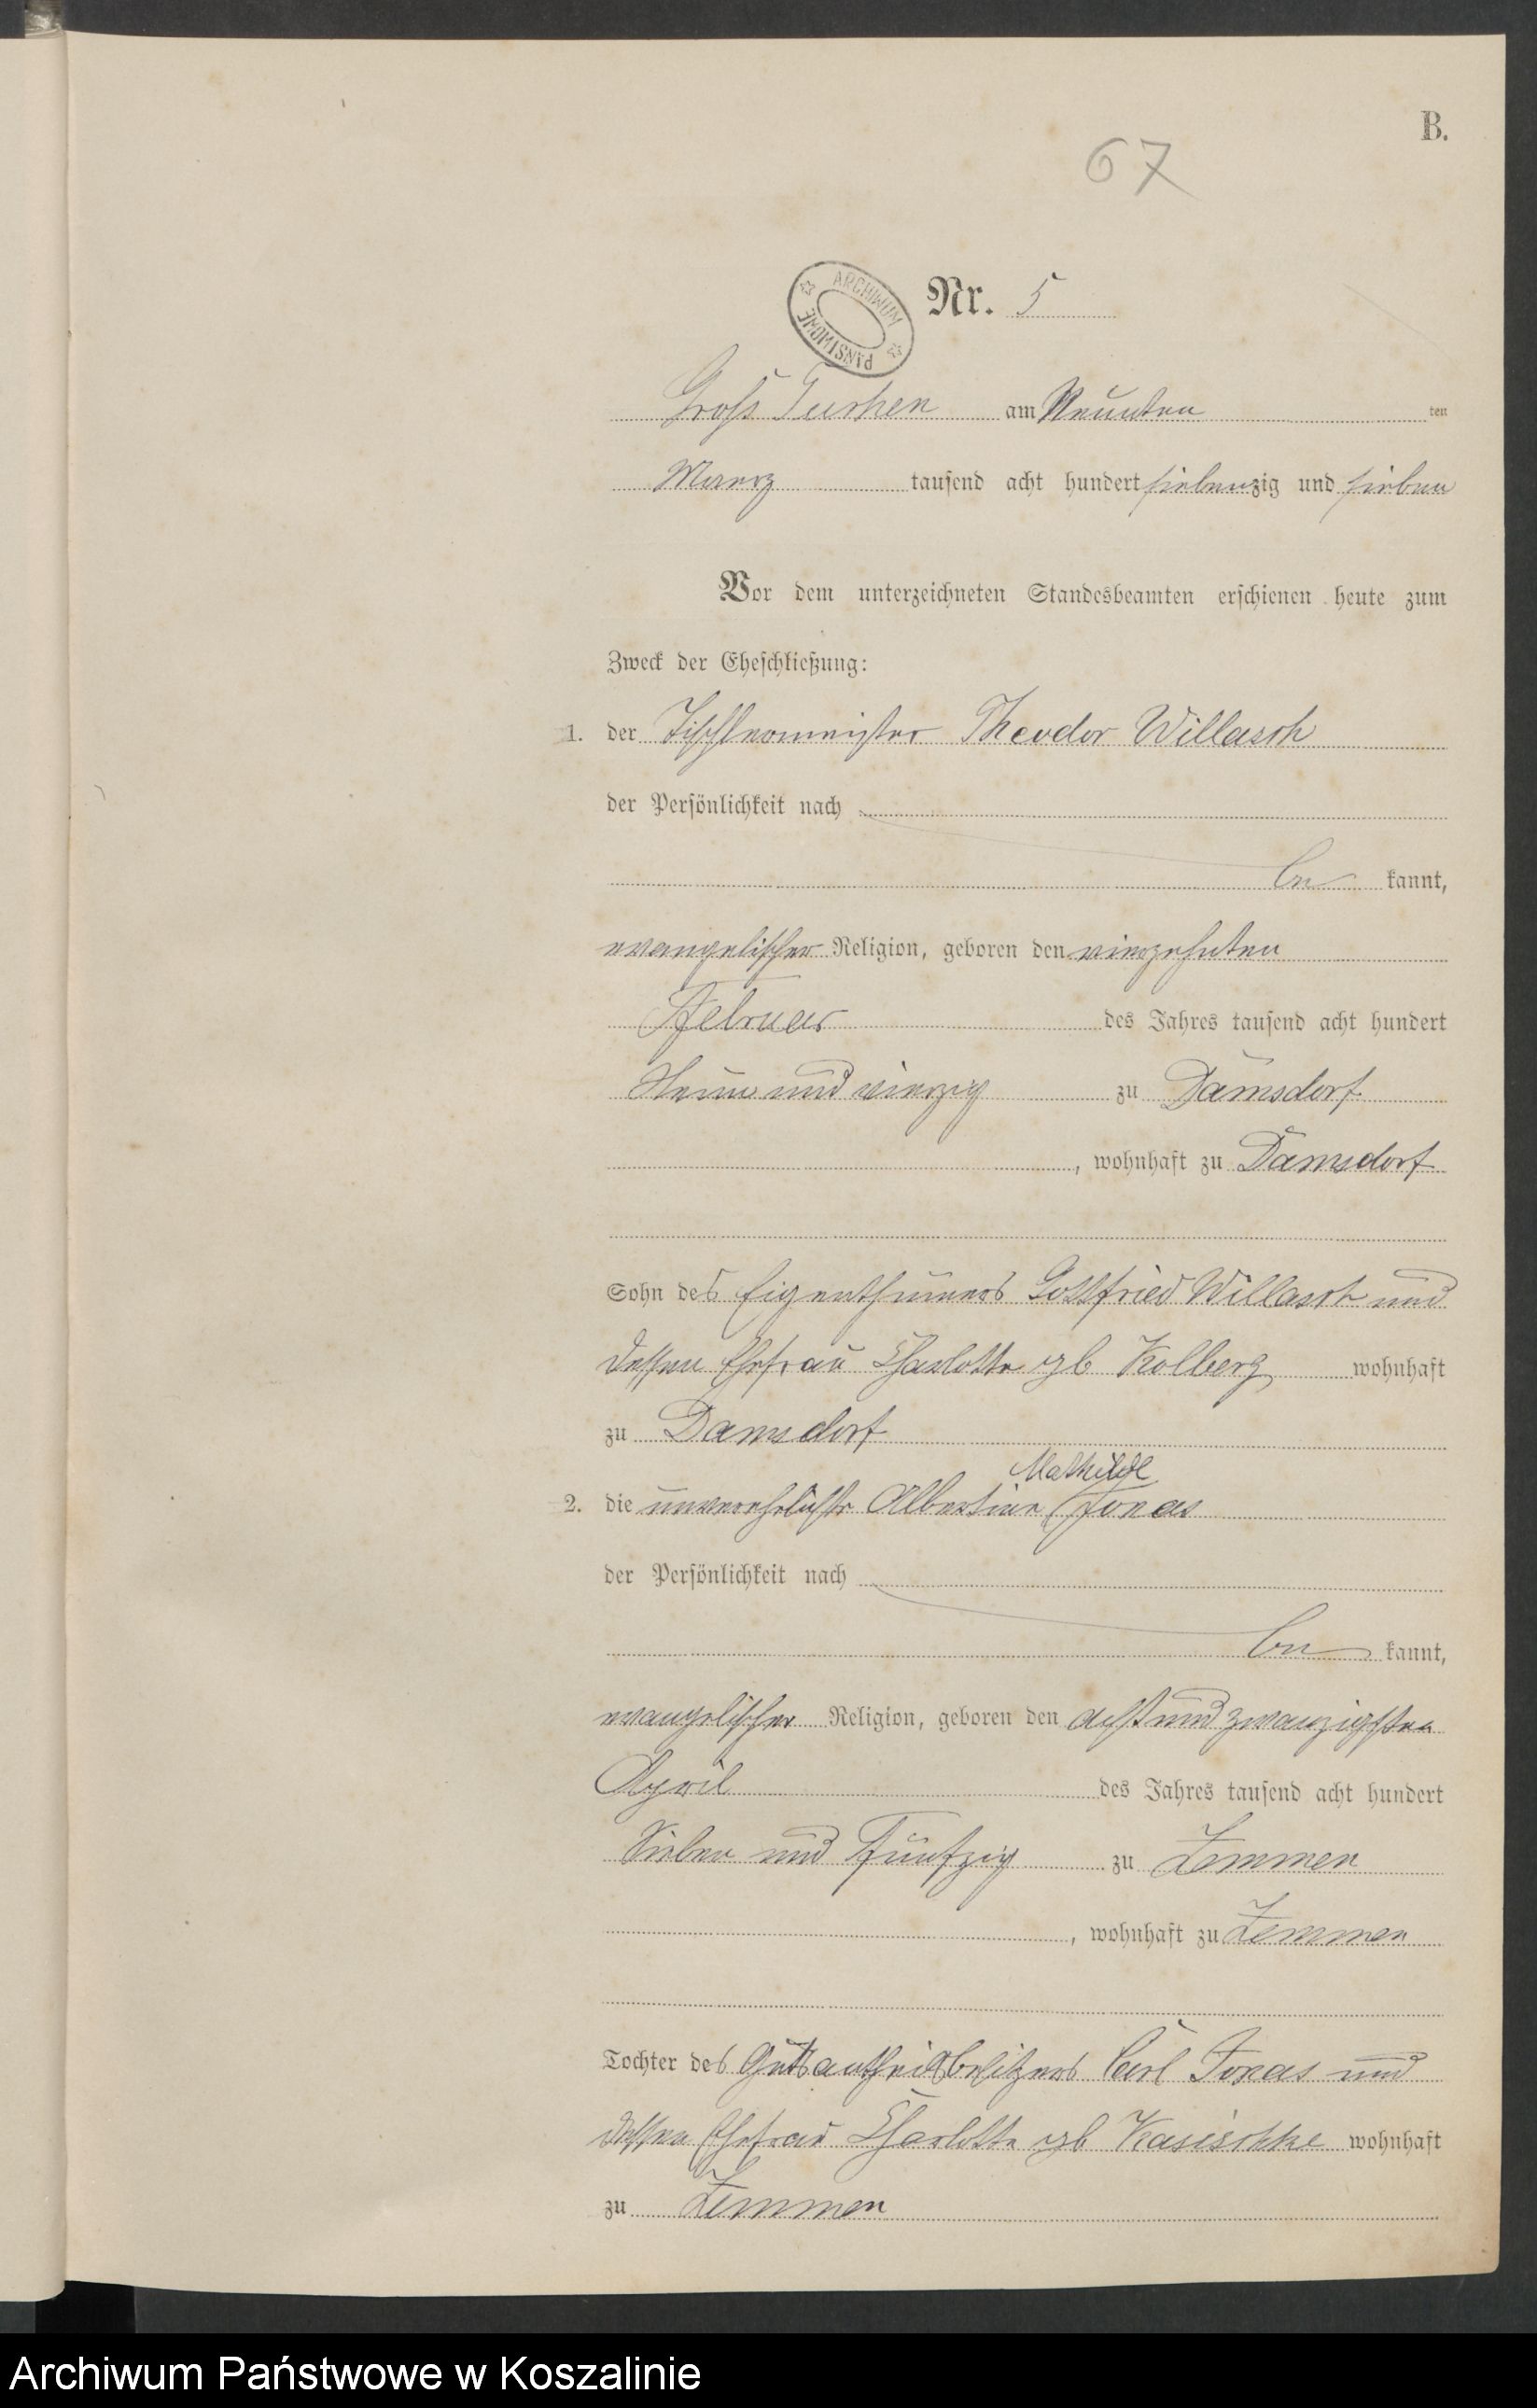 B.
67
ARCHIWUM PAŃSTWOWE
Nr. 5
Groß Tuchen am Neunten ten
Maerz tausend acht hundert siebenzig und sieben
Vor dem unterzeichneten Standesbeamten erschienen heute zum
Zweck der Eheschließung:
1. der Tischlermeister Theodor Willasch
der Persönlichkeit nach
be kannt,
evangelischer Religion, geboren den vierzehnten
Februar des Jahres tausend acht hundert
Neun und vierzig zu Damsdorf
, wohnhaft zu Damsdorf
Sohn des Eigenthümers Gottfried Willasch und
dessen Ehefrau Charlotte gb Kolberg wohnhaft
zu Damsdorf
Mathilde
2. die unverehelichte Albertine Jonas
der Persönlichkeit nach
be kannt,
evangelischer Religion, geboren den acht und zwanzigsten
April des Jahres tausend acht hundert
Sieben und Fünfzig zu Zemmen
, wohnhaft zu Zemmen
Tochter des Gutsantheilsbesitzers Carl Jonas und
dessen Ehefrau Charlotte gb Kasischke wohnhaft
zu Zemmen
Archiwum Państwowe w Koszalinie